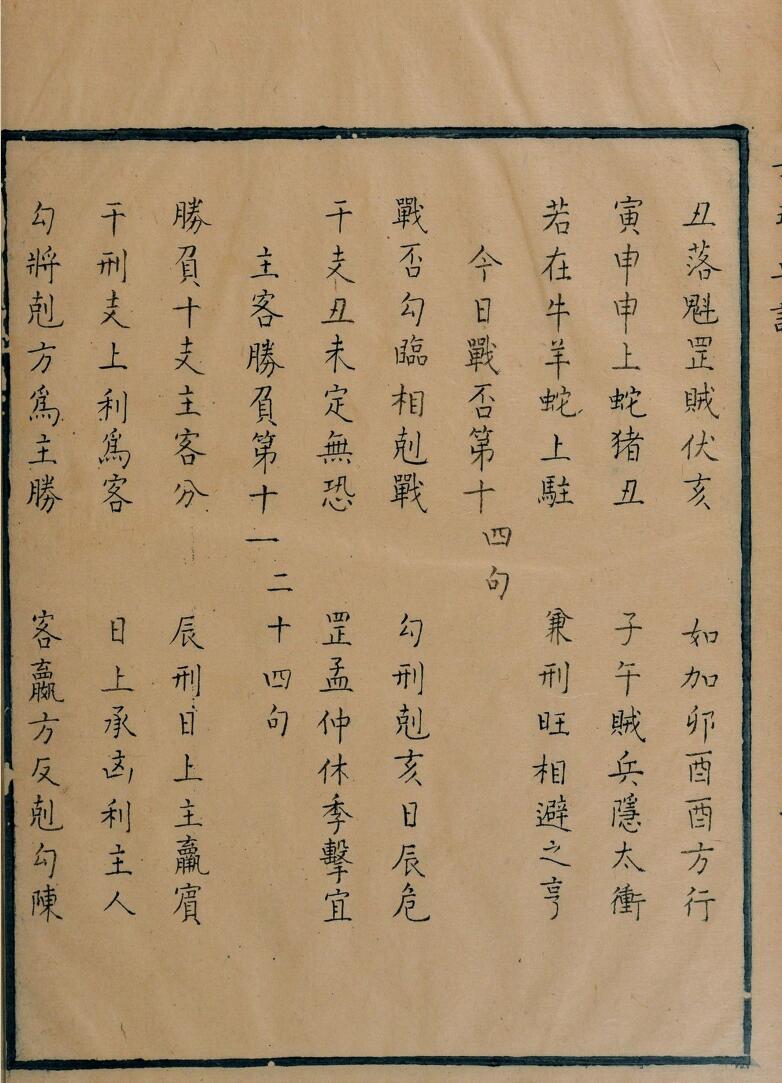 丑落魁罡賊伏亥　如加卯酉酉方行
寅申申上蛇猪丑　子午賊兵隱太衝
若在牛羊蛇上駐　兼刑旺相避之亨
今日戰否第十　四句
戰否勾臨相剋戰　勾刑剋亥日辰危
干支丑未定無恐　罡孟仲休季擊宜
主客勝負第十一　二十四句
勝負十支主客分　辰刑日上主贏賓
干刑支上利爲客　日上承凶利主人
勾將剋方爲主勝　客贏方反剋勾陳